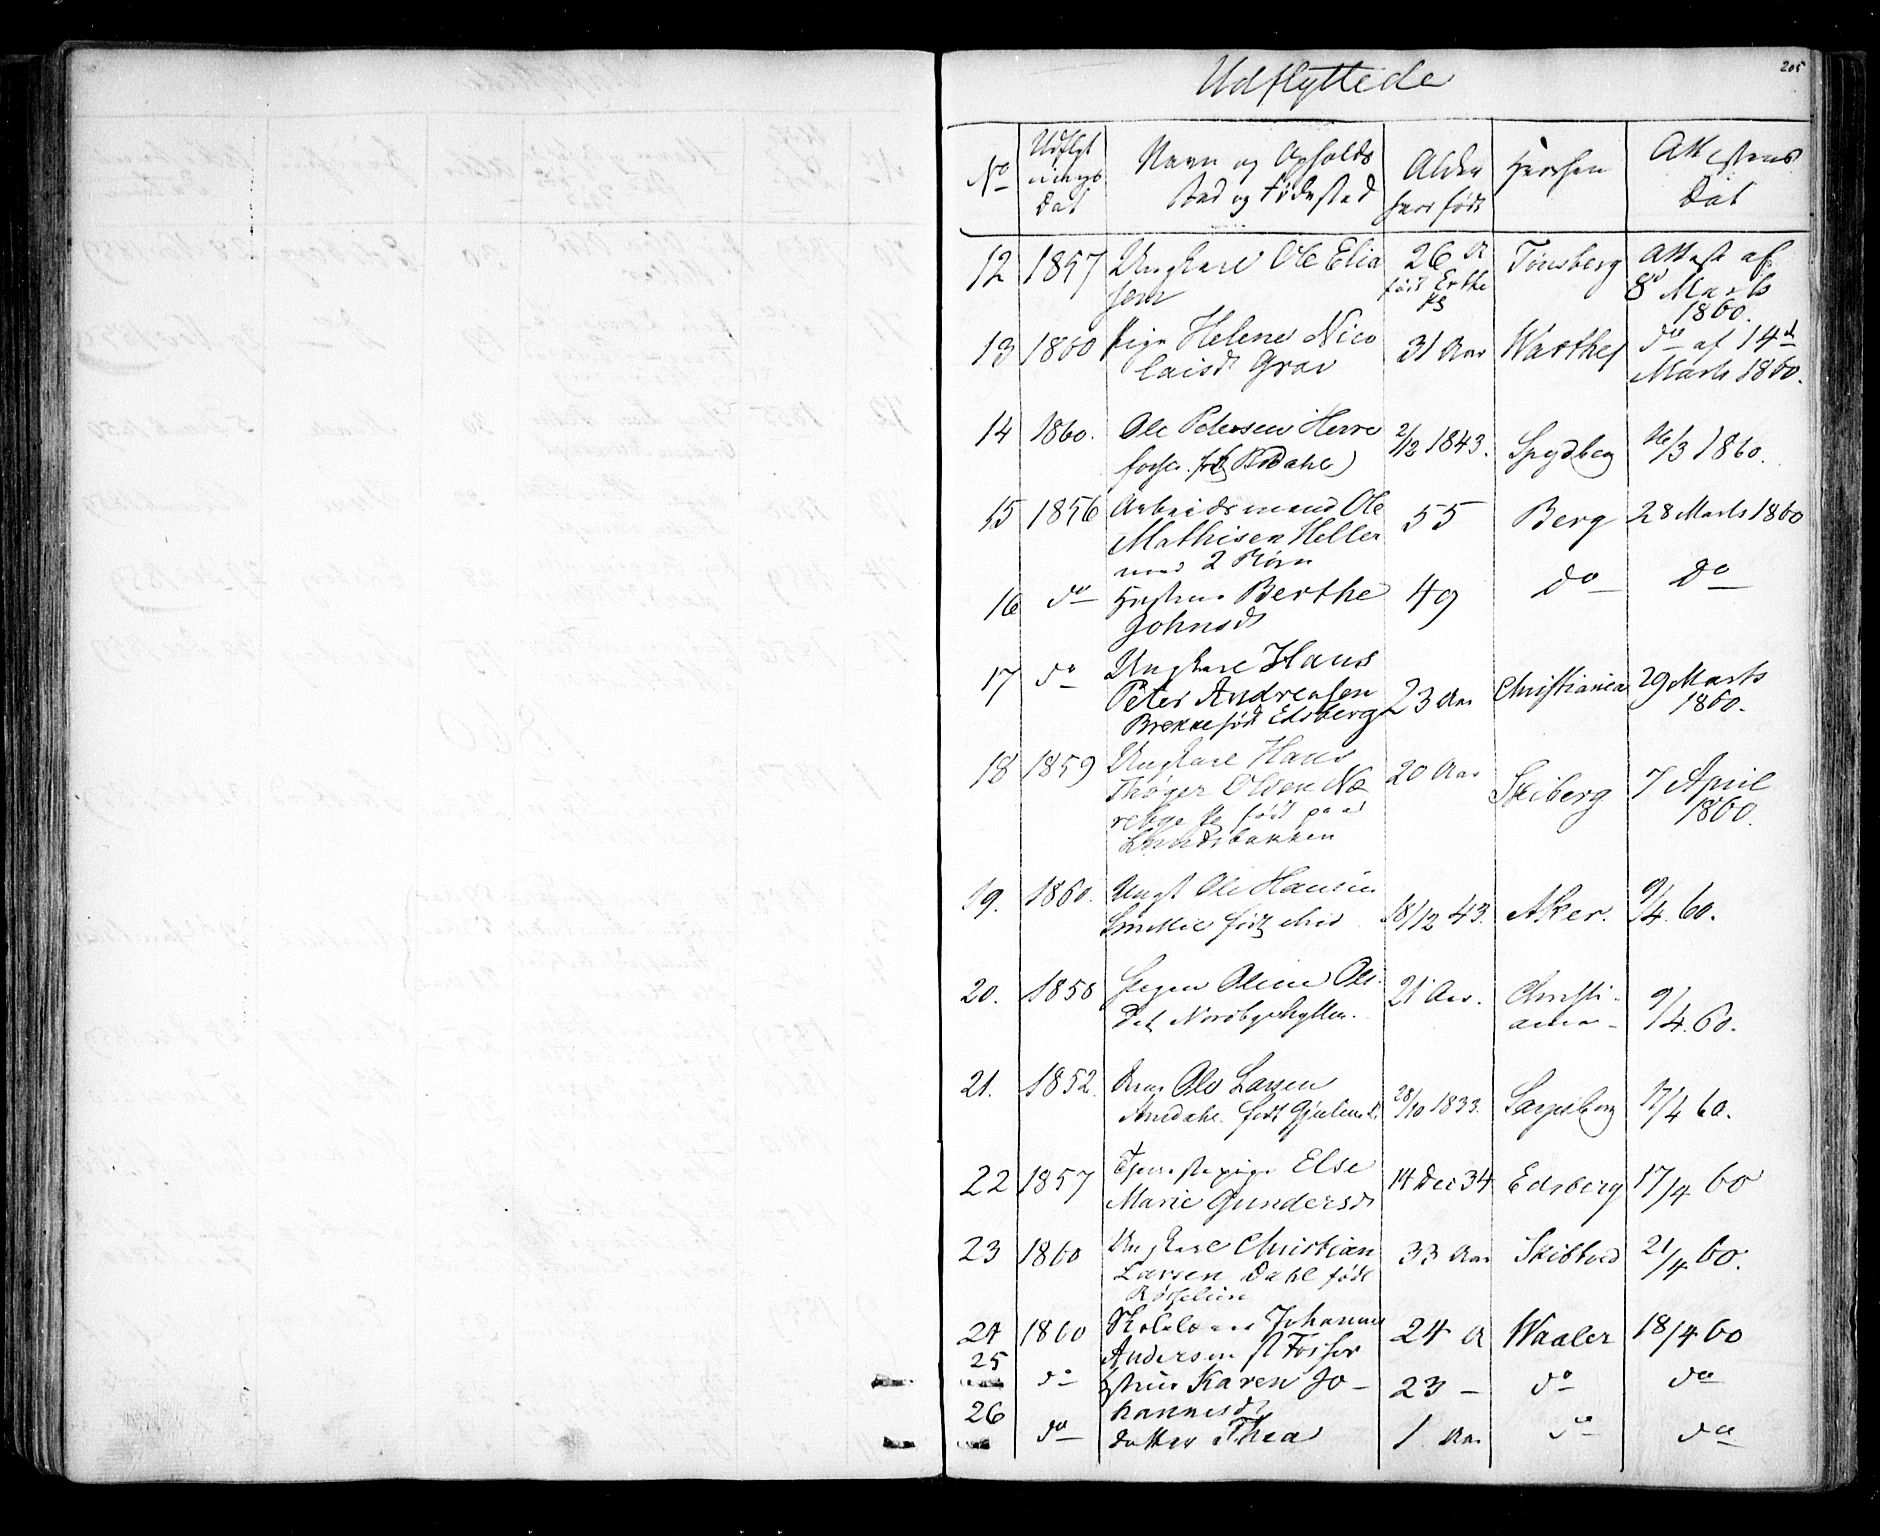 205
Udflyttede
No Udflyt Navn og Opholds Alder Hvorhen Attestens
nings sted og Fødested hvor født Dat
Dat
12 1857 Ungkarl Ole Elia 26 A Tønsberg Attest af
sen født 8d Marts
1860.
13 1860 Pige Helene Nico 31 Aar do af 14d
laisd Grav Marts 1860.
14 1860. Ole Petersen Herre 2/12 1843. Spydberg 16/3 1860.
fosse
15 1856 Arbeidsmand Ole 55 Berg 28 Marts 1860
Mathisen Heller
med 2 Børn
16 do Hustrue Berthe 49 do do
Johnsd
17 do Ungkarl Hans
Peter Andreasen 23 Aar Christiania 29 Marts
Brekke født Edsberg 1860.
18 1859 Ungkarl Hans 20 Aar
Thøger Olsen Næ Skiberg 7 April
født paa 1860.
Lundsbakken
19. 1860. Ungk Ole Hansen
født 18/12 43. Aker. 9/4. 60.
20. 1858 Pigen Oline Ols 21 Aar. Christi-
dat. ania 9/4. 60.
21. 1852. Ole Larsen
født 28/10 1833. Sarpsborg 17/4 60.
22 1857 Tjenestepige Else 14 Dec 34 Edsberg 17/4 60
Marie Gundersd
23 1860 Ungkarl Christian 33 Aar Skibtved 21/4 60.
Larsen Dahl født
24 1860 Skolelærer Johannes 24 A Waaler 18/4 60
25 Andersen Fosser
do Hstrue Karen Jo- 23 - do do
26 hannesd
do datter Thea 1 Aar do do